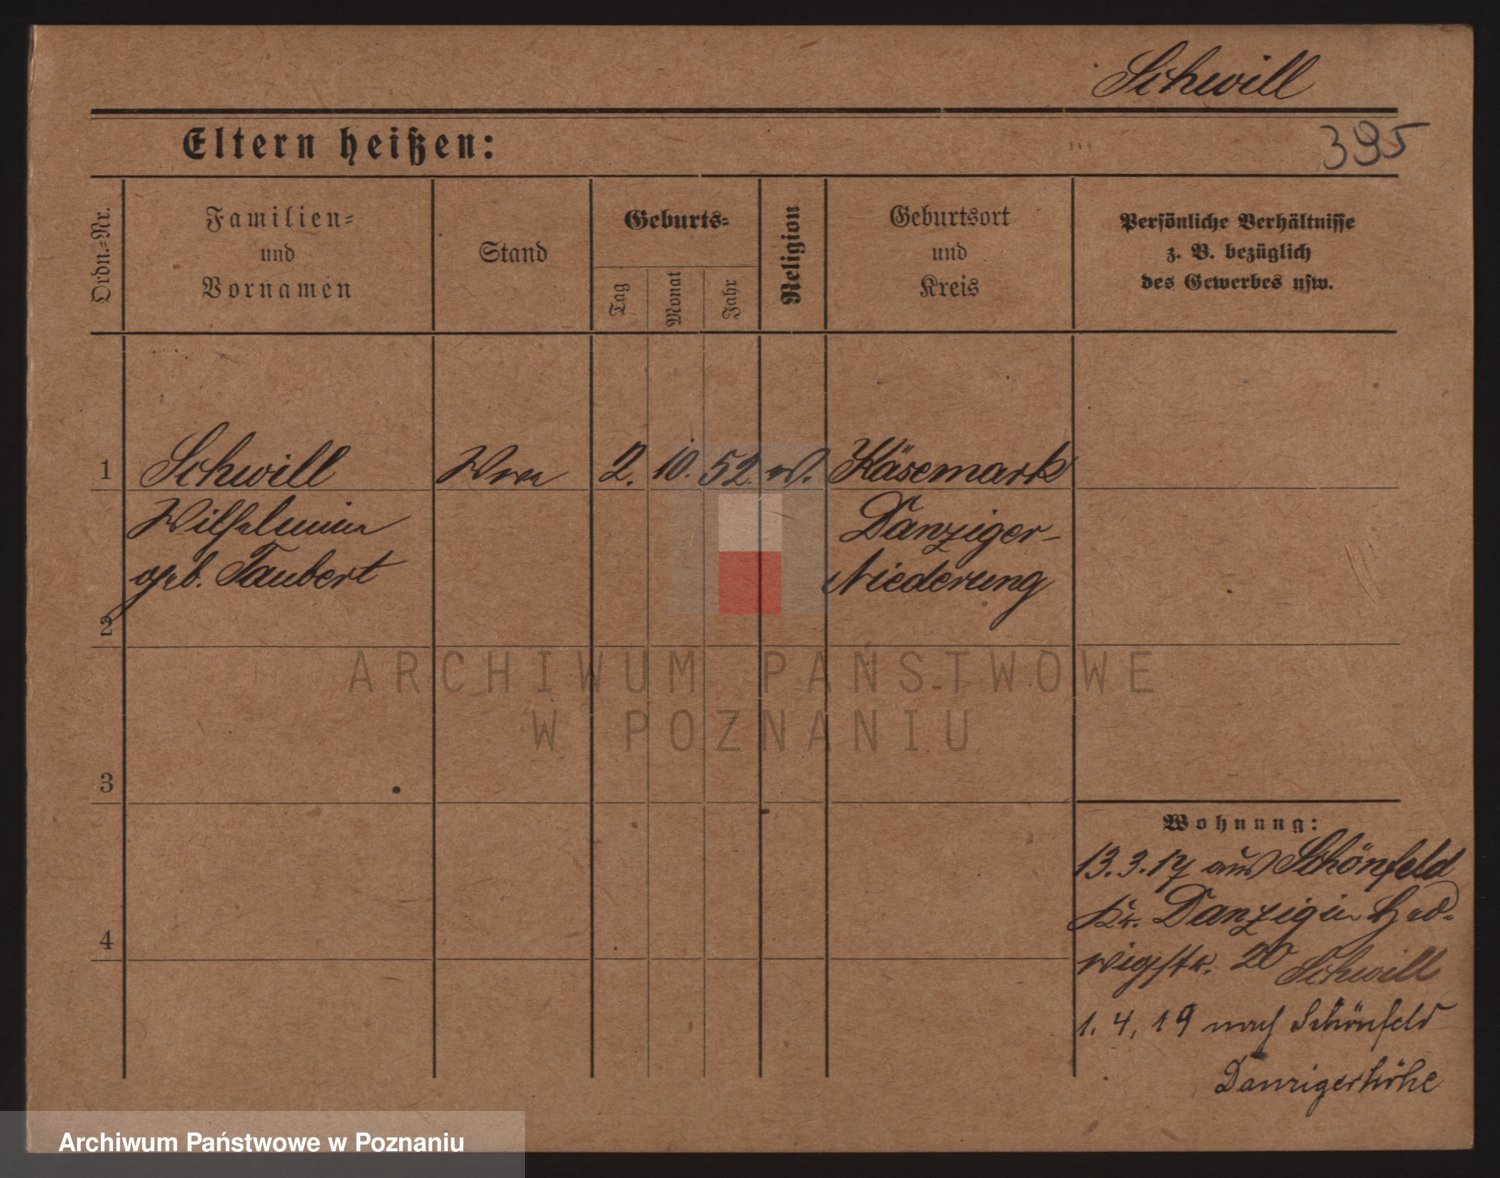 Schwill
395
Eltern heißen:
Ordn.-Nr.
Familien-
und
Vornamen
Stand
Geburts-
Tag
Monat
Jahr
Religion
Geburtsort
und
Kreis
Persönliche Verhältnisse
z. B. bezüglich
des Gewerbes usw.
1 Schwill Wwe 2. 10. 52. Käsemark
Wilhelmine Danziger-
geb. Taubert Niederung
2
3
4
Wohnung:
13.3.17 aus Schönfeld
Kr. Danzig in Hed-
wigstr. 20 Schwill
1. 4. 19 nach Schönfeld
Danzigerhöhe
ARCHIWUM PAŃSTWOWE
W POZNANIU
Archiwum Państwowe w Poznaniu